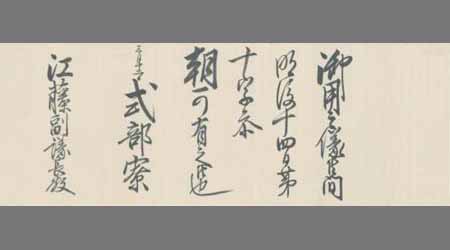 御用之儀候間
明後十四日第
十字参
朝可有之候也
式部寮
江藤副議長殿